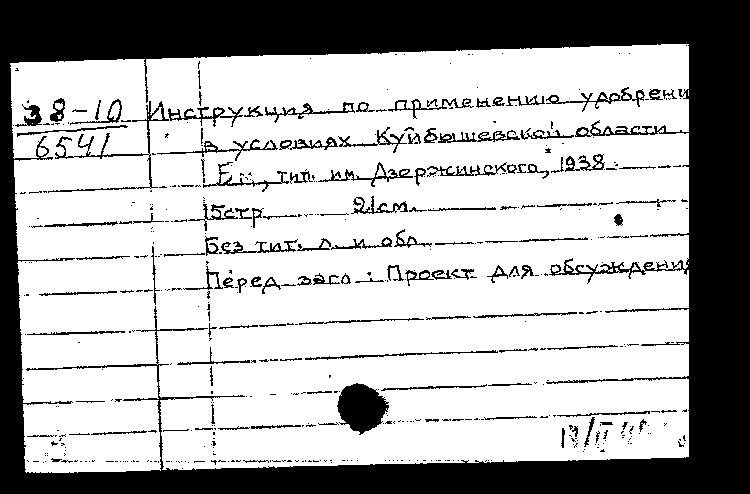 38-10
6541
Инструкция по применению удобрени
в условиях Куйбышевской области.
Б.м., тип. им. Дзержинского, 1938.
15стр. 21см.
Без тит. л. и обл.
Перед загл.: Проект для обсуждения